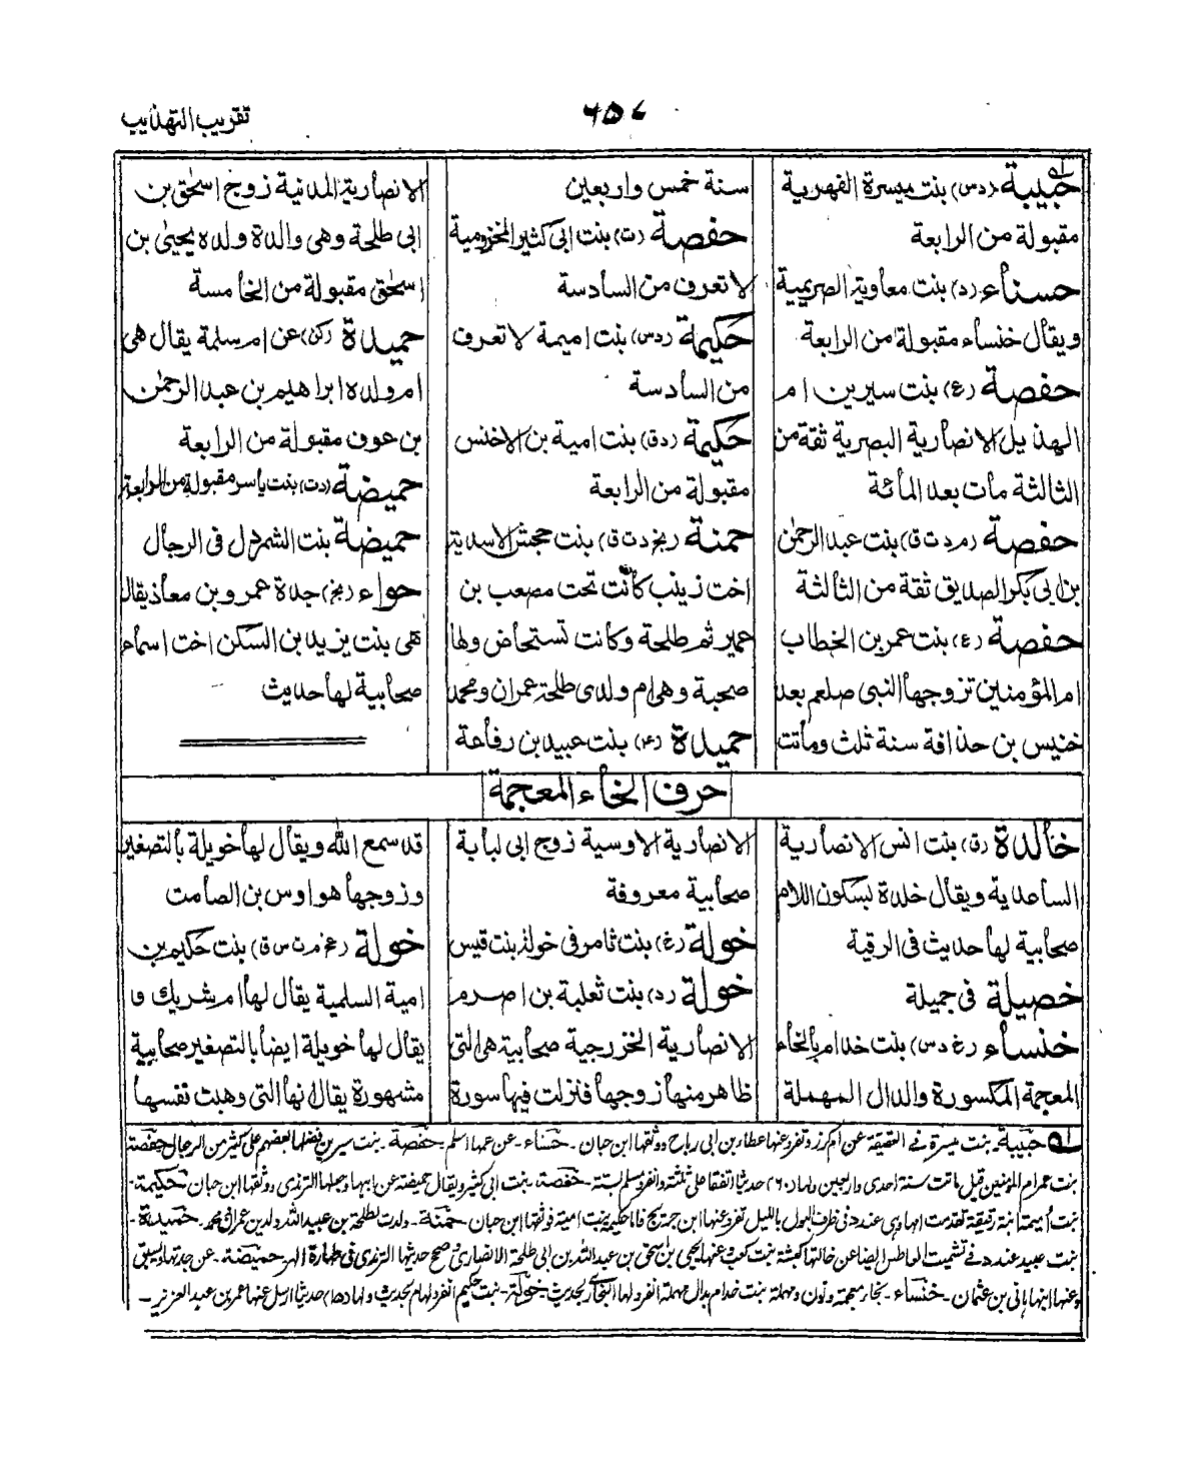 تقريب التهذيب
٤٥٧
حبيبة (دس) بنت ميسرة الفهرية
مقبولة من الرابعة
حسناء (د) بنت معاوية الصريمية
ويقال خنساء مقبولة من الرابعة
حفصة (ع) بنت سيرين ام
الهذيل الانصارية البصرية ثقة من
الثالثة مات بعد المائة
حفصة (م د ت ق) بنت عبد الرحمٰن
بن ابى بكر الصديق ثقة من الثالثة
حفصة (ع) بنت عمر بن الخطاب
ام المؤمنين تزوجها النبى صلعم بعد
خنيس بن حذافة سنة ثلث وماتت
سنة خمس واربعين
حفصة (ت) بنت ابى كثير المخزومية
لا تعرف من السادسة
حكيمة (دس) بنت اميمة لا تعرف
من السادسة
حكيمة (دق) بنت امية بن الاخنس
مقبولة من الرابعة
حمنة (بخ د ت ق) بنت جحش الاسدية
اخت زينب كانت تحت مصعب بن
عمير ثم طلحة وكانت تستحاض ولها
صحبة وهى ام ولدى طلحة عمران ومحمد
حميدة (٤) بنت عبيد بن رفاعة
الانصارية المدنية زوج اسحٰق بن
ابى طلحة وهى والدة ولده يحيىٰ بن
اسحٰق مقبولة من الخامسة
حميدة (كن) عن ام سلمة يقال هى
ام ولد ابراهيم بن عبد الرحمٰن
بن عوف مقبولة من الرابعة
حميضة (دت) بنت ياسر مقبولة من الرابعة
حميضة بنت الشمردل فى الرجال
حواء (بخ) جدة عمرو بن معاذ يقال
هى بنت يزيد بن السكن اخت اسماء
صحابية لها حديث
حرف الخاء المعجمة
خالدة (ق) بنت انس الانصارية
الساعدية ويقال خلدة بسكون اللام
صحابية لها حديث فى الرقية
خصيلة فى جميلة
خنساء (خ دس) بنت خدام بالخاء
المعجمة المكسورة والدال المهملة
الانصارية الاوسية زوج ابى لبابة
صحابية معروفة
خولة (خ) بنت ثامر فى خولة بنت قيس
خولة (د) بنت ثعلبة بن اصرم
الانصارية الخزرجية صحابية هى التى
ظاهر منها زوجها فنزلت فيها سورة
قد سمع الله ويقال لها خويلة بالتصغير
وزوجها هو اوس بن الصامت
خولة (عخ م ت س ق) بنت حكيم بن
امية السلمية يقال لها ام شريك و
يقال لها خويلة ايضا بالتصغير صحابية
مشهورة يقال انها التى وهبت نفسها
حبيبة۔ بنت ميسرة فى العقيقة عن ام كرز وتفرد عنها عطاء بن ابى رباح ووثقها ابن حبان۔ حسناء۔ عن عمها اسلم۔ حفصة۔ بنت سيرين فضلها بعضهم على كثير من الرجال حفصة
بنت عمر ام المؤمنين قيل ماتت سنة احدى واربعين ولها (٦٠) حديثا اتفقا على ثلثة وانفرد مسلم بستة۔ حفصة۔ بنت ابى كثير ويقال حميضة عن ابيها وجهلها الترمذى ووثقها ابن حبان حكيمة۔
بنت اميمة ابنة رقيقة تقدمت امها وهى عند د فى ظرف البول بالليل تفرد عنها ابن جريج فاما حكيمة بنت امية فوثقها ابن حبان۔ حمنة۔ ولدت لطلحة بن عبيد الله ولدين عمران ومحمد۔ حميدة۔
بنت عبيد عند د فى تشميت العاطس ايضا عن خالتها كبشة بنت كعب وعنها ابنها يحيى بن اسحٰق بن عبد الله بن ابى طلحة الانصارى وصحح حديثها الترمذى فى طهارة الهر حميضة۔ عن جدتها يسيرة
وعنها ابنها هانى بن عثمان۔ خنساء۔ بخاء معجمة ونون ومهملة بنت خدام بدال مهملة انفرد لها البخارى بحديث۔ خولة۔ بنت حكيم انفرد لها م بحديث ولها (١٥) حديثا ارسل عنها عمر بن عبد العزيز۔